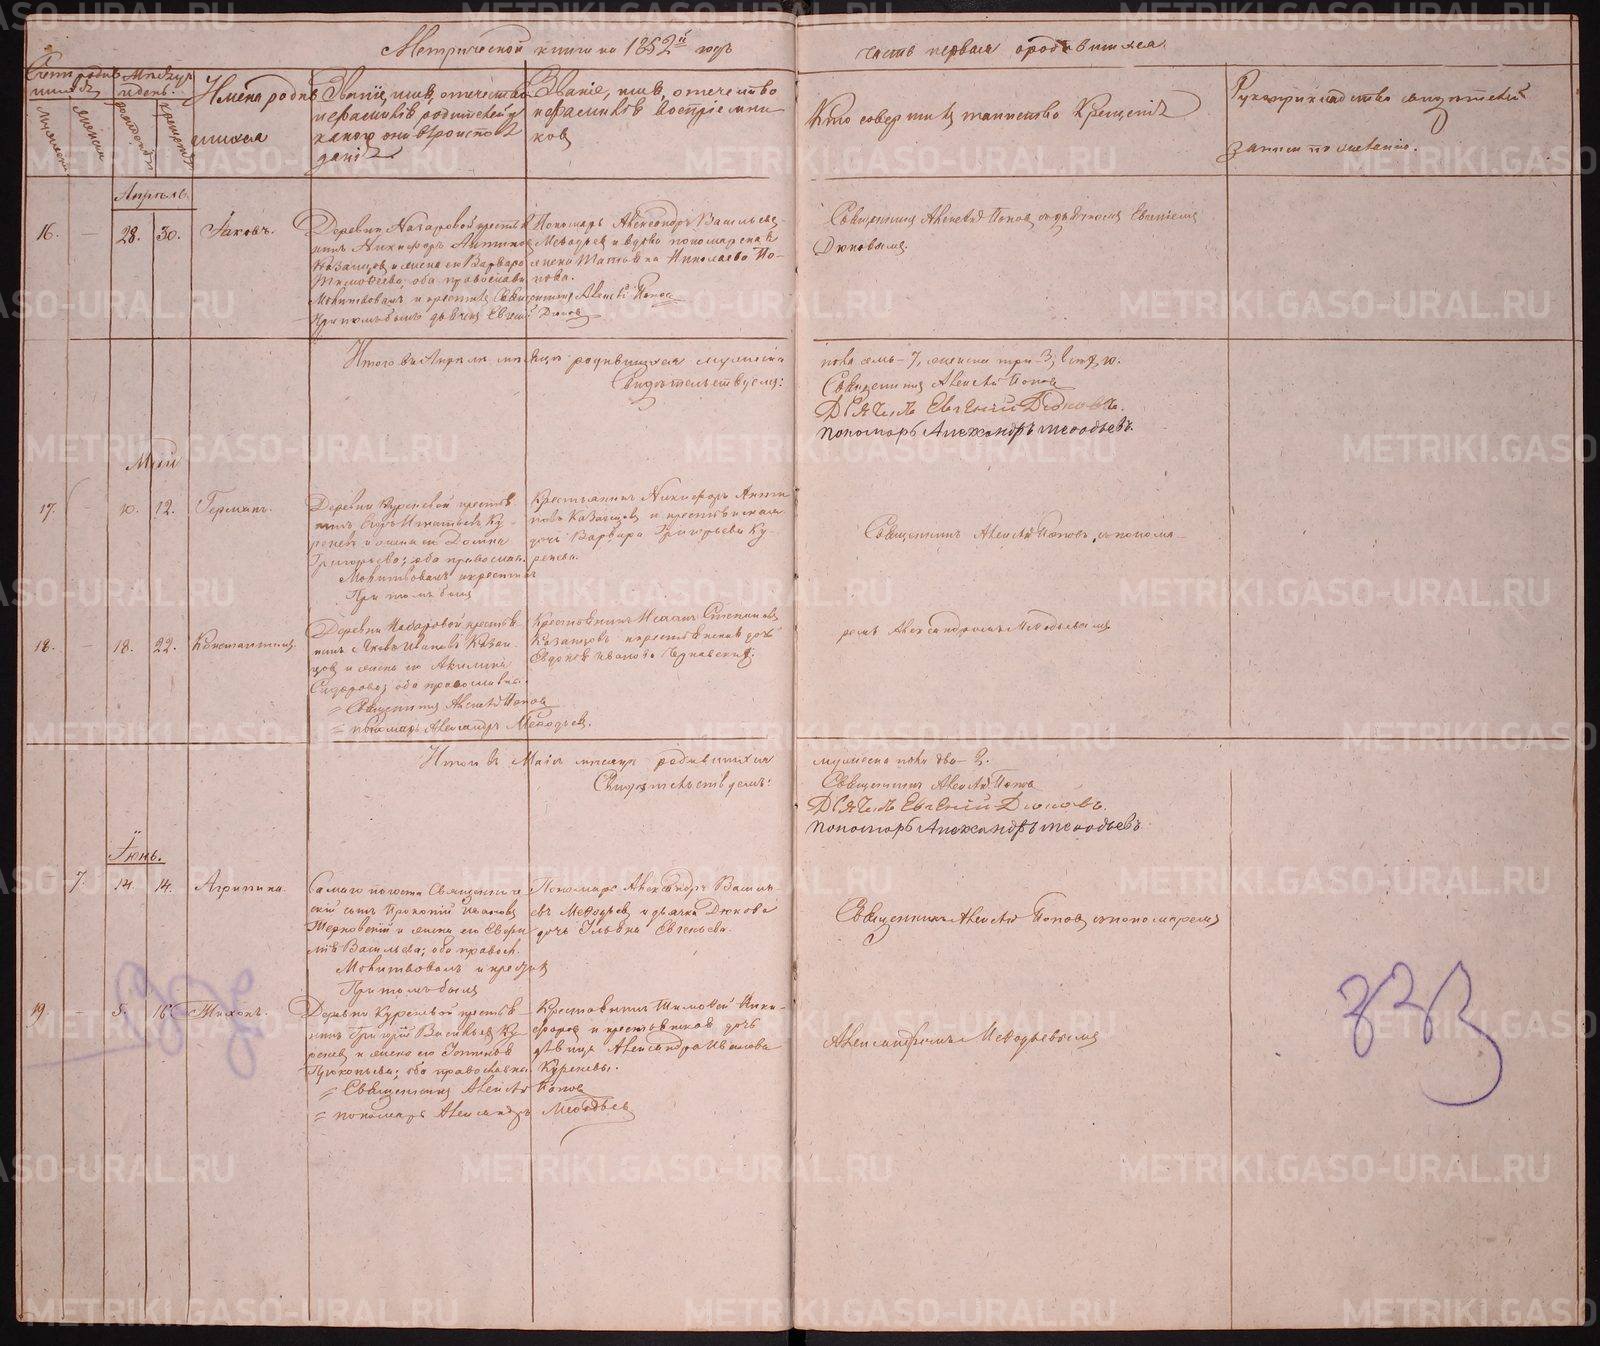 Метрической книги на 1852й годъ
часть первая о родившихся
Счетъ родив
шихся
Мѣсяцъ
и день.
Имена родив
шихся
Званіе, имя, отчество
и фамилія родителей и
какого они вѣроиспо
данія
Званіе, имя, отчество
и фамилія воспріемни
ковъ
Кто совершилъ таинство Крещенія
Рукоприкладство свидѣтелей
записи по желанію.
мужеска
женска
рожденія
крещенія
Апрѣль.
16.
—
28.
30.
Іаковъ.
Деревни Назаровой крестья
нинъ Никифоръ Антипов
Казанцовъ и жена его Варвара
Тимоѳеева, оба православн
Молитвовалъ и крестилъ Священникъ Алексѣй Поповъ
При томъ былъ дьячекъ Евгеній Дюковъ
Пономарь Александръ Васильевъ
Меѳодьевъ и вдова пономарская
жена Татьяна Николаева По-
пова.
Священникъ Алексѣй Поповъ съ дьячкомъ Евгеніемъ
Дюковымъ.
Итого въ Апрѣлѣ мѣсяцѣ родившихся мужеска
Свидѣтельствуемъ:
пола семь-7, женска три-3,
Священникъ Алексѣй Поповъ
Дьячекъ Евгеній Дюковъ.
Пономарь Александръ Меѳодьевъ.
Май
17.
—
10.
12.
Германъ.
Деревни Куреневой крестья
нинъ Егоръ Игнатьевъ Ку-
реневъ и жена его Домна
Григорьева; оба православн.
Молитвовалъ и крестилъ
При томъ былъ
Крестьянинъ Никифоръ Анти
повъ Казанцовъ и крестьянская
дочь Варвара Григорьева Ку-
ренева.
Священникъ Алексѣй Поповъ съ понома-
18.
—
18.
22.
Константинъ.
Деревни Назаровой крестья-
нинъ Яковъ Ивановъ Казан
цовъ и жена его Акилина
Сидорова; оба православн.
= Священникъ Алексѣй Поповъ
= пономарь Александръ Меѳодьевъ.
Крестьянинъ Степановъ
Казанцовъ и крестьянская дочь
Евдокія Иванова
ремъ Александромъ Меѳодьевымъ
Итого въ Маѣ мѣсяцѣ родившихся
Свидѣтельствуемъ:
мужеска пола два-2.
Священникъ Алексѣй Поповъ
Дьячекъ Евгеній Дюковъ.
Пономарь Александръ Меѳодьевъ
Іюнь.
7.
14.
14.
Агрипина.
Самаго погоста Священниче
скій сынъ Прокопій Ивановъ
и жена его
Васильева; оба правосл.
Молитвовалъ и крестилъ
При томъ былъ
Пономарь Александръ Василь-
евъ Меѳодьевъ и дьячка Дюкова
дочь Ульяна Евгеньева.
Священникъ Алексѣй Поповъ съ пономаремъ
19.
—
16.
Тихонъ.
Деревни Куреневой крестья-
нинъ Григорій Васильевъ Ку-
реневъ и жена его
Прокопьева; оба православн.
= Священникъ Алексѣй Поповъ
= пономарь Александръ Меѳодьевъ
Крестьянинъ Тимоѳей Ники-
форовъ и крестьянская дочь
дѣвица Александра Иванова
Куреневы.
Александромъ Меѳодьевымъ
METRIKI.GASO-URAL.RU